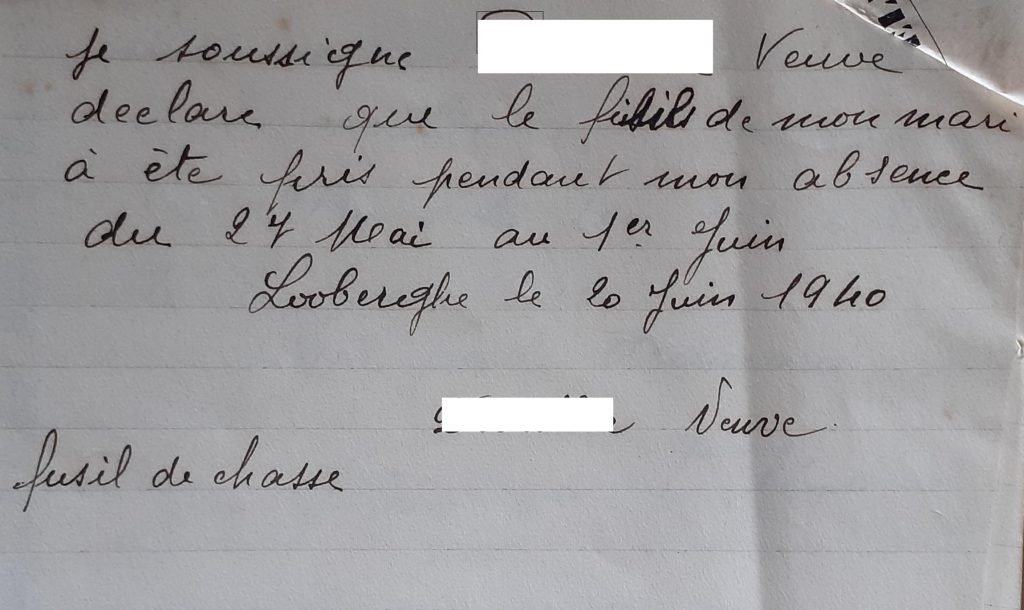 Je soussigne Veuve
declare que le fusils de mon mari
à ète pris pendant mon absence
du 27 Mai au 1er Juin
Looberghe le 20 Juin 1940
Veuve.
fusil de chasse